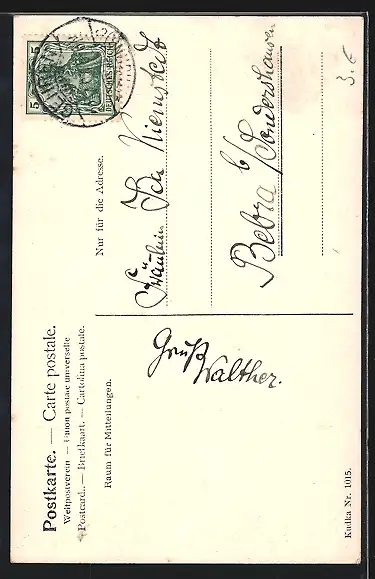 Postkarte. — Carte postale.
Weltpostverein — Union postale universelle
Postcard. — Briefkaart. — Cartolina postale.
Raum für Mitteilungen.
Gruß
Walther.
Nur für die Adresse.
Fräulein
Bebra b/Sondershausen
3.€
5 5
DEUTSCHES REICH
Kudka Nr. 1015.